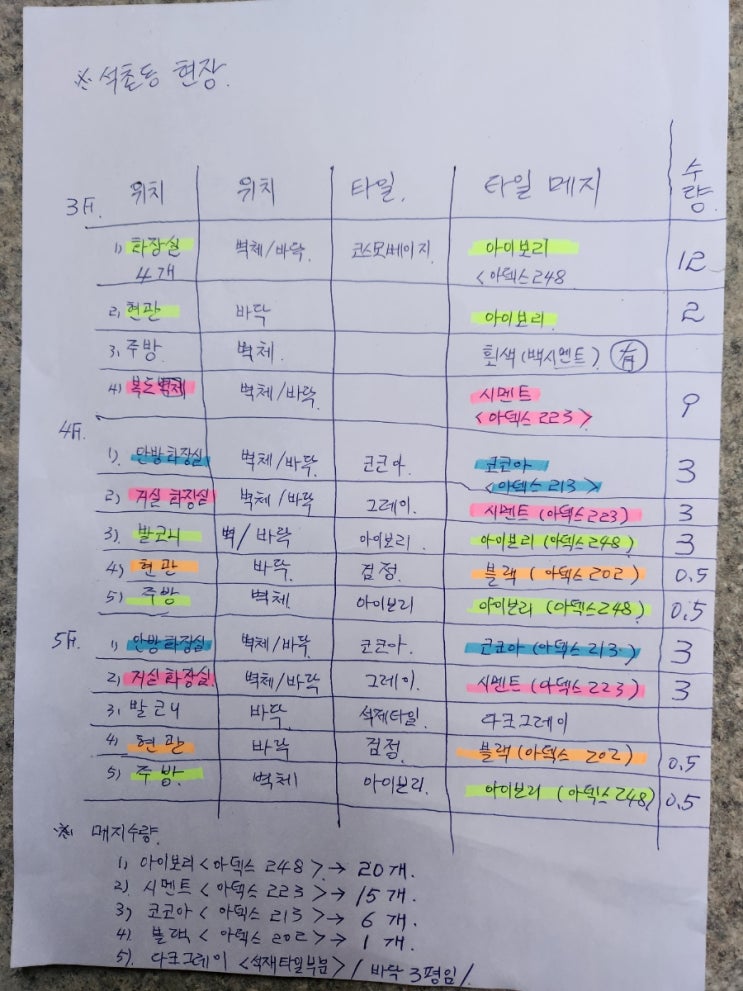 ※ 석촌동 현장.
위치 위치 타일. 타일 메지 수량
3F.
1) 화장실 벽체/바닥 코스모베이지 아이보리 12
4개 <아덱스248
2) 현관 바닥 아이보리 2
3) 주방 벽체. 회색(백시멘트) 有
4) 복도벽체 벽체/바닥 시멘트 9
<아덱스 223>
4F.
1) 안방화장실 벽체/바닥 코코아. 코코아 3
<아덱스 213>
2) 거실 화장실 벽체/바닥 그레이. 시멘트 (아덱스223) 3
3) 발코니 벽/바닥 아이보리. 아이보리 (아덱스248) 3
4) 현관 바닥 검정 블랙 (아덱스 202) 0.5
5) 주방 벽체 아이보리 아이보리 (아덱스248) 0.5
5F.
1) 안방화장실 벽체/바닥 코코아. 코코아 (아덱스 213.) 3
2) 거실 화장실. 벽체/바닥 그레이. 시멘트 (아덱스 223) 3
3) 발코니 바닥 석재타일. 다크그레이
4) 현관 바닥 검정 블랙(아덱스 202) 0.5
5) 주방 벽체 아이보리. 아이보리 (아덱스 248) 0.5
※ 메지수량.
1) 아이보리 <아덱스 248> → 20개.
2) 시멘트 <아덱스 223> → 15개.
3) 코코아 <아덱스 213> → 6개.
4) 블랙 <아덱스 202> → 1개.
5) 다크그레이 <석재타일부분> / 바닥 3평임/.